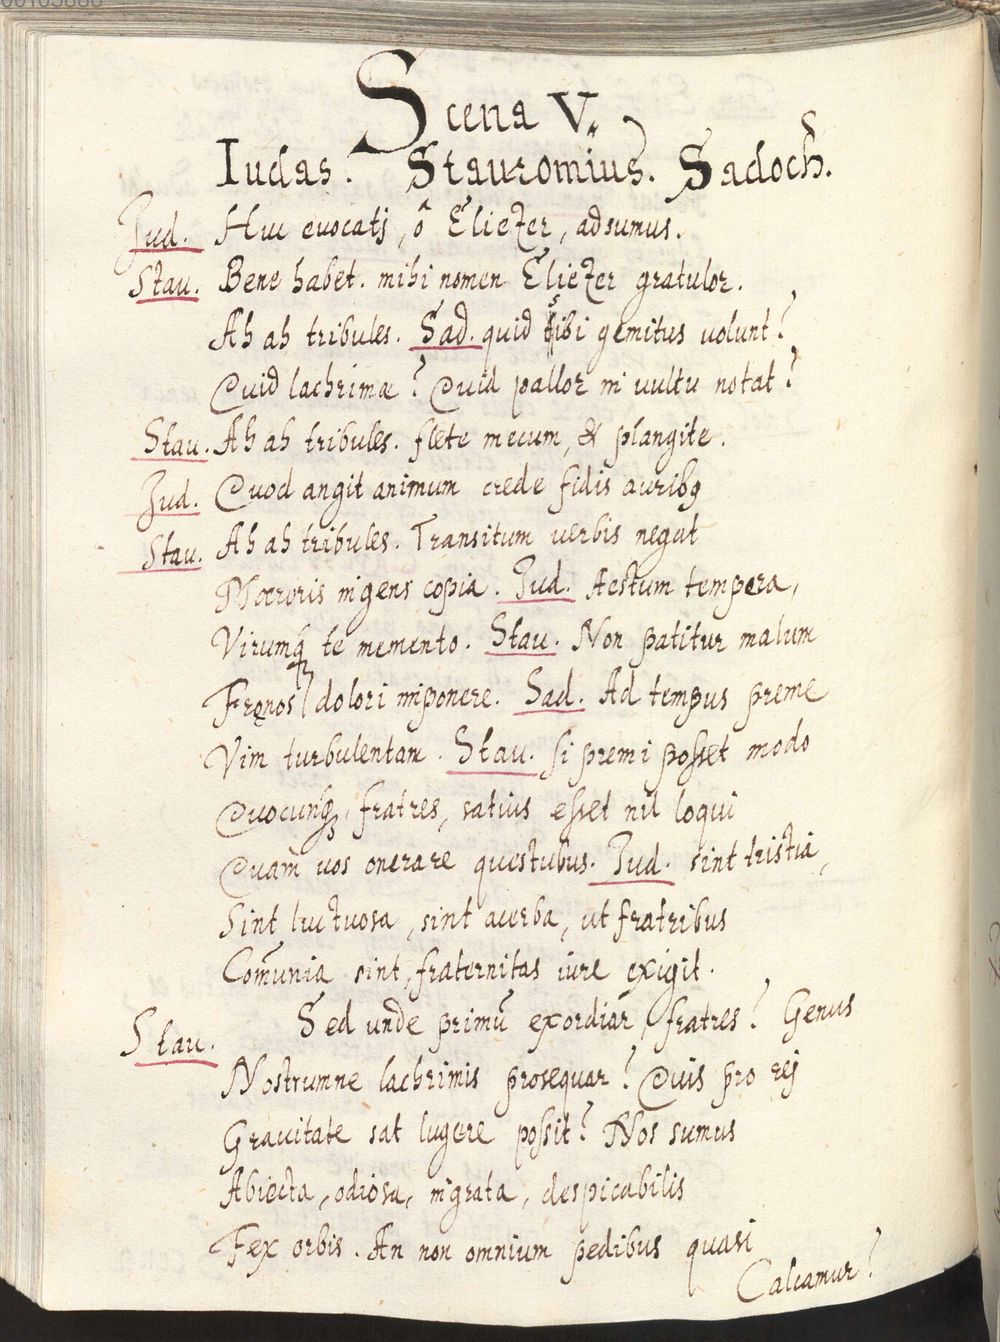 Scena V.
Iudas. Stauromius. Sadoch.
Jud. Huc euocatj, ô Eliezer, adsumus.
Stau. Bene habet. mihi nomen Eliezer gratulor.
Ah ah tribules. Sad. quid sibi gemitus uolunt?
Quid lachrimæ? Quid pallor in uultu notat?
Stau. Ah ah tribules. flete mecum, & plangite.
Jud. Quod angit animum crede fidis auribꝫ
Stau. Ah ah tribules. Transitum uerbis negat
Mœroris ingens copia. Jud. Aestum tempera,
Virumq́ꝫ te memento. Stau. Non patitur malum
Fręnos dolori imponere. Sad. Ad tempus preme
Vim turbulentam. Stau. si premi posset modo
Quocunq́ꝫ, fratres, satius esset nil loqui
Quam uos onerare questubus. Jud. sint tristia,
Sint luctuosa, sint acerba, ut fratribus
Com̃unia sint, fraternitas iure exigit.
Stau. Sed unde primũ exordiar, fratres? Genus
Nostrumne lachrimis prosequar? Quis pro rej
Grauitate sat lugere possit? Nos sumus
Abiecta, odiosa, ingrata, despicabilis
Fex orbis. An non omnium pedibus quasi
Calcamur?